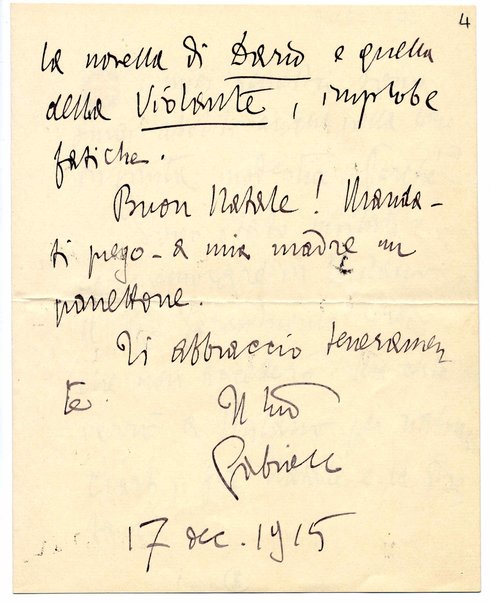 4
la novella di Dario e quella
della Violante, improbe
fatiche.
Buon Natale! Manda -
ti prego - a mia madre un
panettone.
Ti abbraccio teneramen
te.
Il tuo
Gabriele
17 dec. 1915